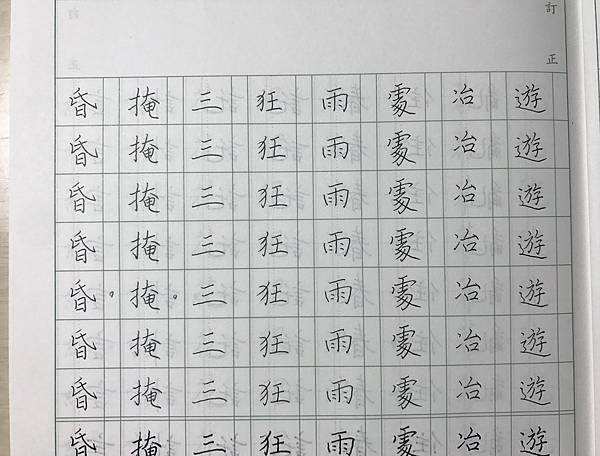 訂正
遊遊遊遊遊遊遊遊
冶冶冶冶冶冶冶冶
處處處處處處處處
雨雨雨雨雨雨雨雨
狂狂狂狂狂狂狂狂
三三三三三三三三
掩掩掩掩掩。掩掩掩
昏昏昏昏昏。昏昏昏